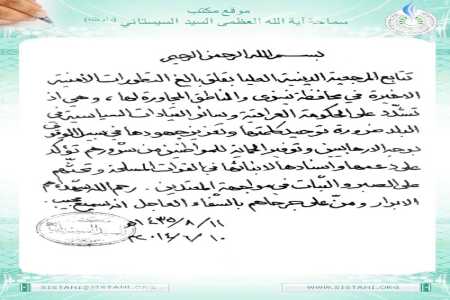 موقع مكتب
سماحة آية الله العظمى السيد السيستاني (دام ظله)
بسم الله الرحمن الرحيم
تتابع المرجعية الدينية العليا بقلق بالغ التطورات الأمنية
الاخيرة في محافظة نينوى والمناطق المجاورة لها ، وهي اذ
تشدّد على الحكومة العراقية وسائر القيادات السياسية في
البلد ضرورة توحيد كلمتها وتعزيز جهودها في سبيل الوقوف
بوجه الارهابيين وتوفير الحماية للمواطنين من شرورهم تؤكد
على دعمها واسنادها لابنائها في القوات المسلحة وتحثهم
على الصبر والثبات في مواجهة المعتدين . رحم الله شهداءهم
الابرار ومنّ على جرحاهم بالشفاء العاجل انه سميع مجيب .
١١/ ٨ / ١٤٣٥ هـ
١٠ / ٦ / ٢٠١٤ م
SISTANI@SISTANI.ORG
WWW.SISTANI.ORG